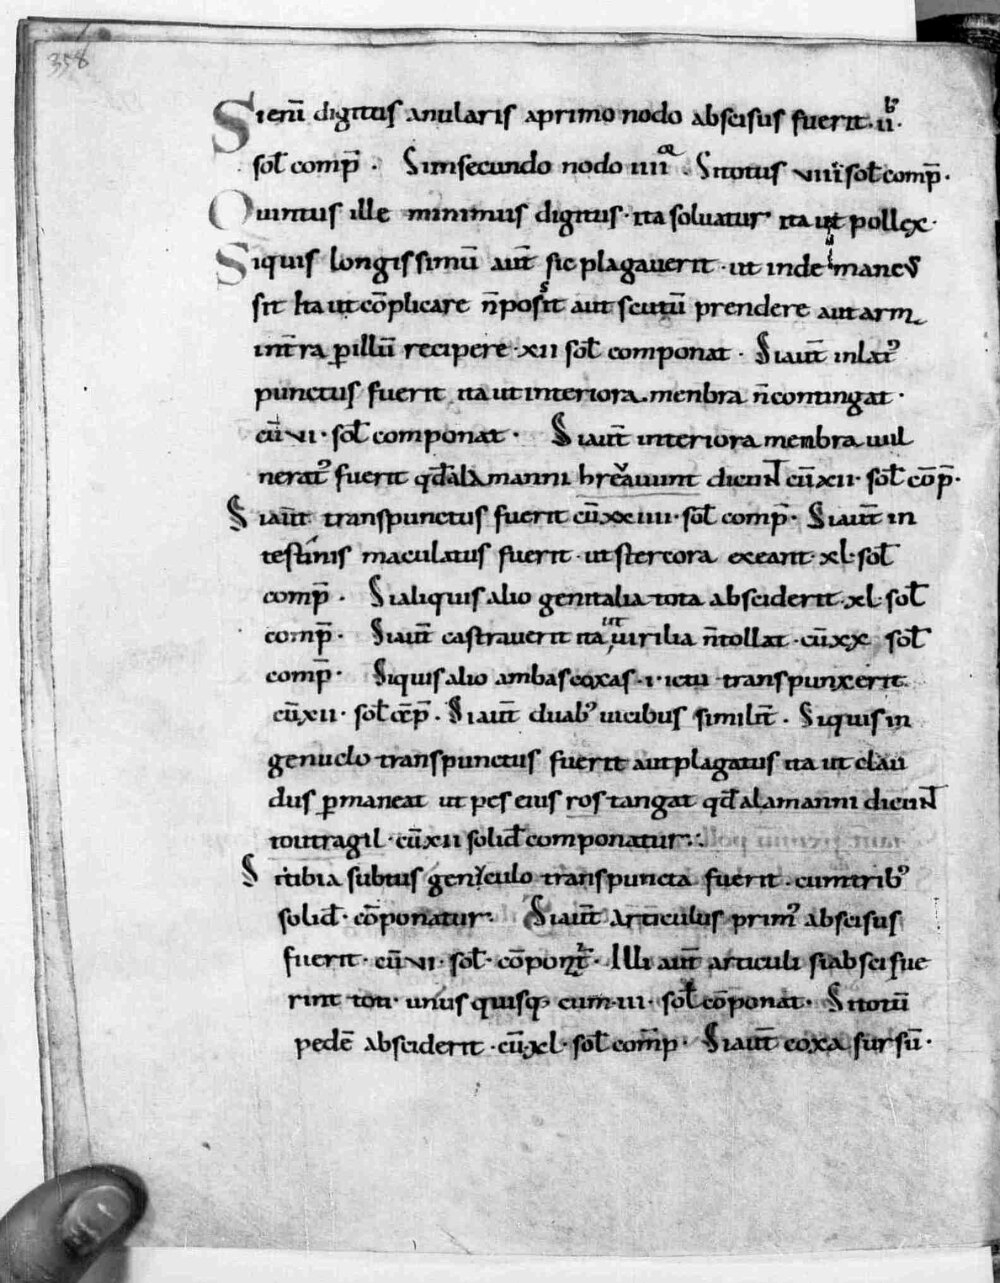 358
Sieni digitus anularis aprimo nodo abscisus fuerit. ii.
sol comp̄ . Sinsecundo nodo iiii . Sitotus viiii sol comp̄.
Quintus ille minimus digitus. ita soluatur ita ut pollex.
Siquis longissimū aut̄ sic plagauerit. ut inde mancus
sit ita ut cōplicare n̄ possit aut scutū prendere aut arm
int̄ra p̱illū recipere .xii sol componat . Siaut̄ inlat᷒
punctus fuerit ita ut interiora menbra n̄contingat .
cū vi. sol componat . Siaut̄ interiora menbra uul
nerat᷒ fuerit qd̄ alamanni hreauunt dicunt cū xii. sol cōp̄.
Siaut̄ transpunctus fuerit cū xxiiii. sol comp̄. Siaut̄ in
testinis maculatus fuerit . ut stercora exeant. xl. sol
comp̄ . Sialiquis alio genitalia tota absciderit. xl. sol
comp̄ . Siaut̄ castrauerit ita ut uirilia n̄tollat . cū xx sol
comp̄ . Siquis alio ambas coxas . i . ictu transpunxerit
cū xii. sol cōp̄ . Siaut̄ duab᷒ uicibus similit̄ . Siquis in
genuclo transpunctus fuerit aut plagatus ita ut clau
dus p̱maneat ut pes eius ros tangat qd̄ alamanni dicunt
toutragil . cū xii solid componatur .
Si tibia subtus geniculo transpuncta fuerit . cum trib᷒
solid . cōponatur. Siaut̄ articulus prim᷒ abscisus
fuerit . cū vi . sol . cōponat̄ . Illi aut̄ articuli si absci fue
rint toti . unus quisq; cum iii . sol cōponat . Si totū
pedē absciderit . cū xl . sol comp̄ . Siaut̄ coxa sursū .